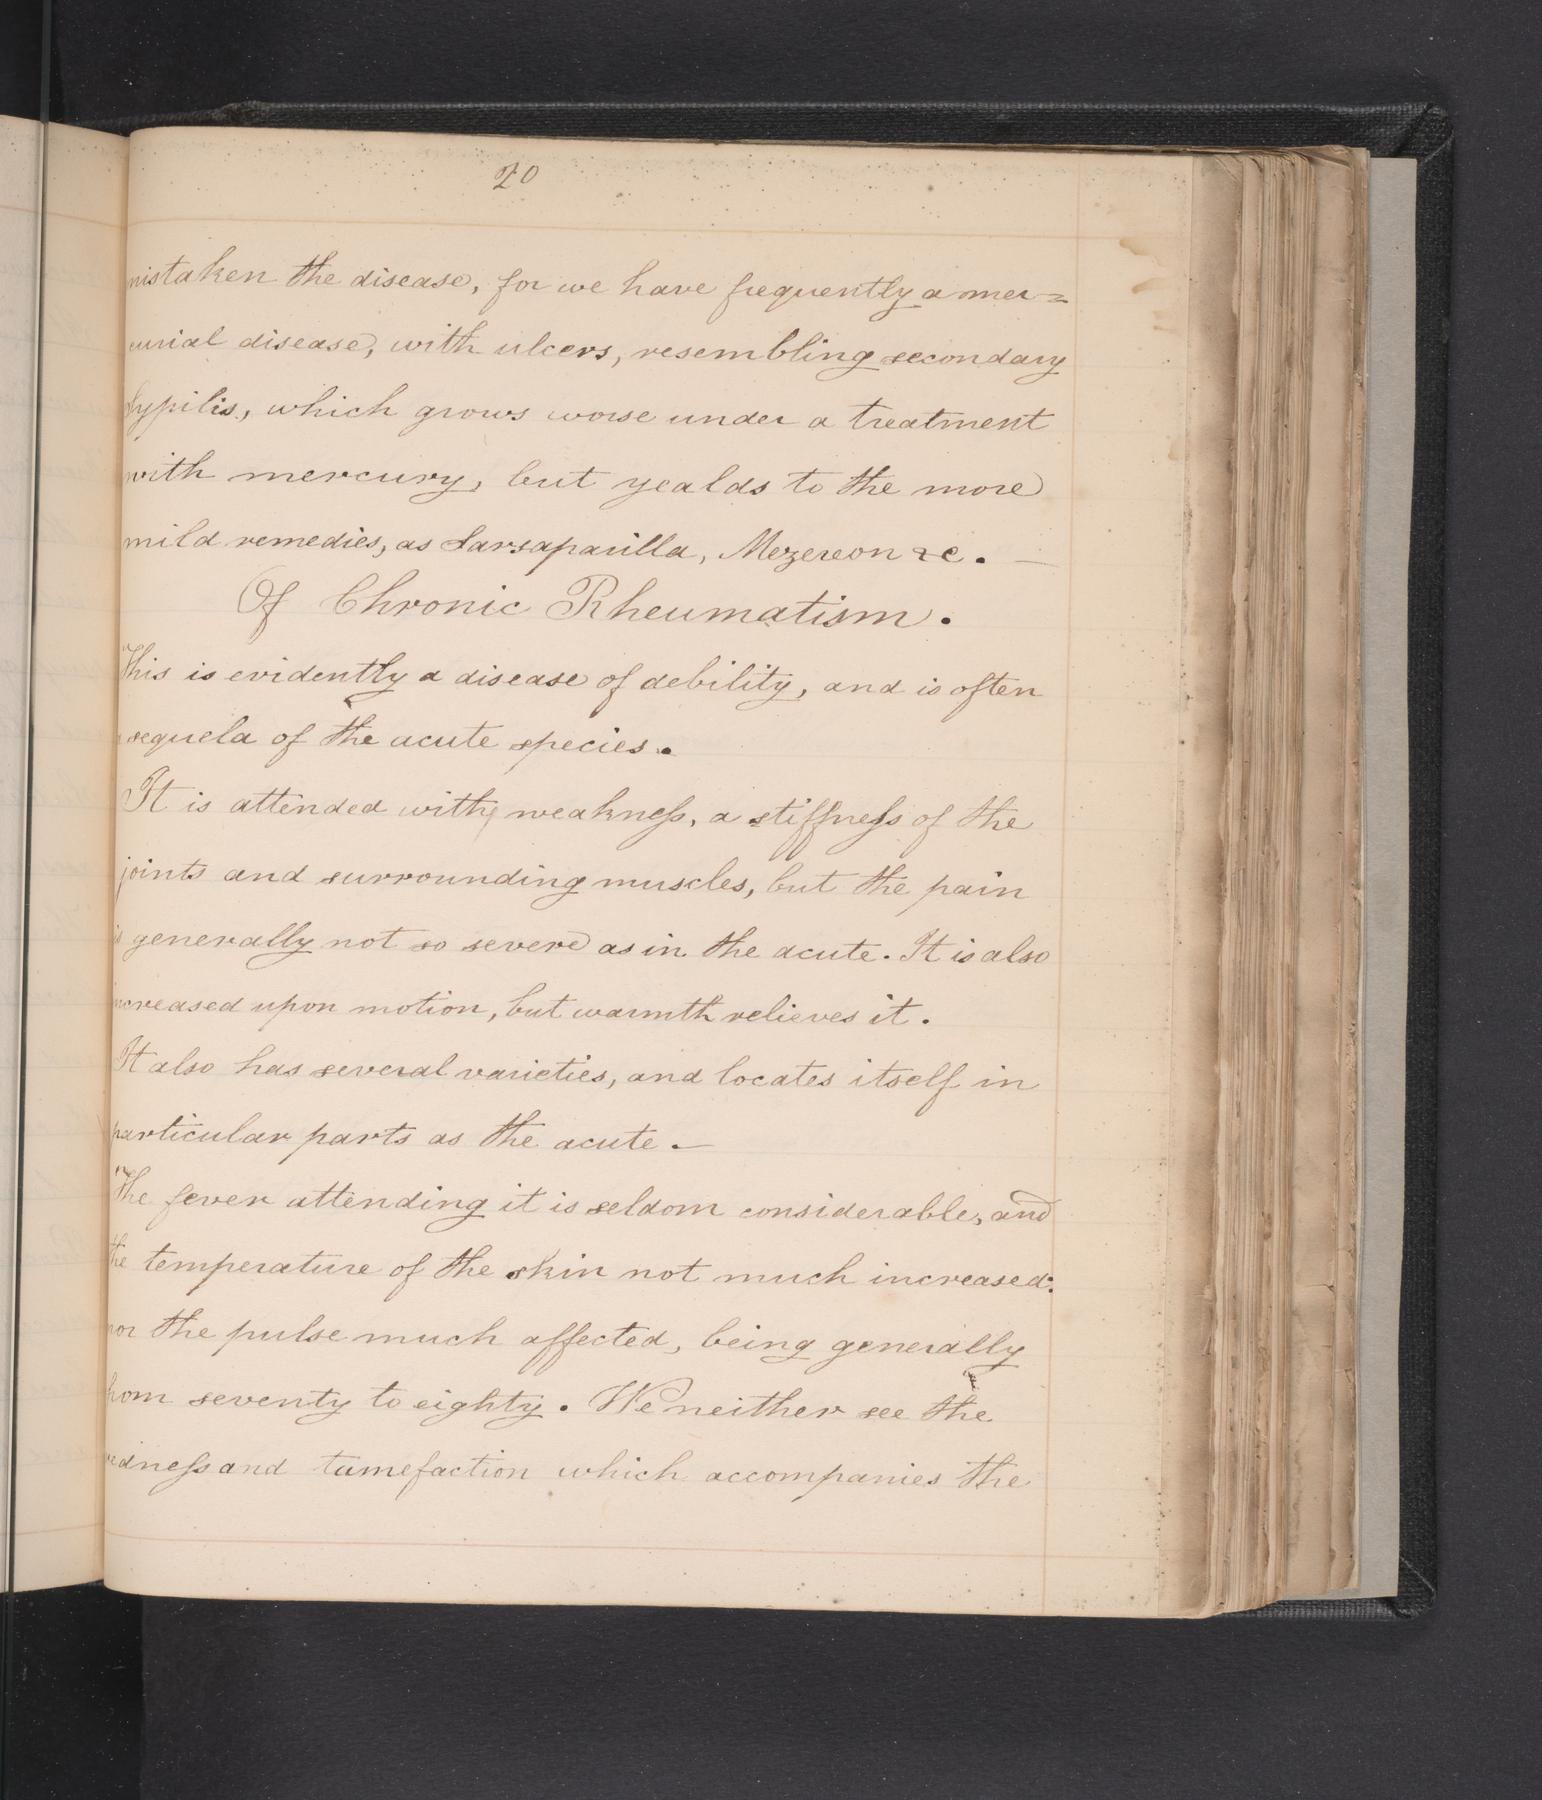 20
mistaken the disease, for we have frequently a mer=
curial disease, with ulcers, resembling secondary
Sypilis, which grows worse under a treatment
with mercury, but yealds to the more
mild remedies, as Sarsaparilla, Mezereon &c. —
Of Chronic Rheumatism.
This is evidently a disease of debility, and is often
sequela of the acute species.
It is attended with, weakness, a stiffness of the
joints and surrounding muscles, but the pain
is generally not so severe as in the acute. It is also
increased upon motion, but warmth relieves it.
It also has several varieties, and locates itself in
particular parts as the acute. —
The fever attending it is seldom considerable, and
the temperature of the skin not much increased:
nor the pulse much affected, being generally
from seventy to eighty. We neither see the
redness and tumefaction which accompanies the